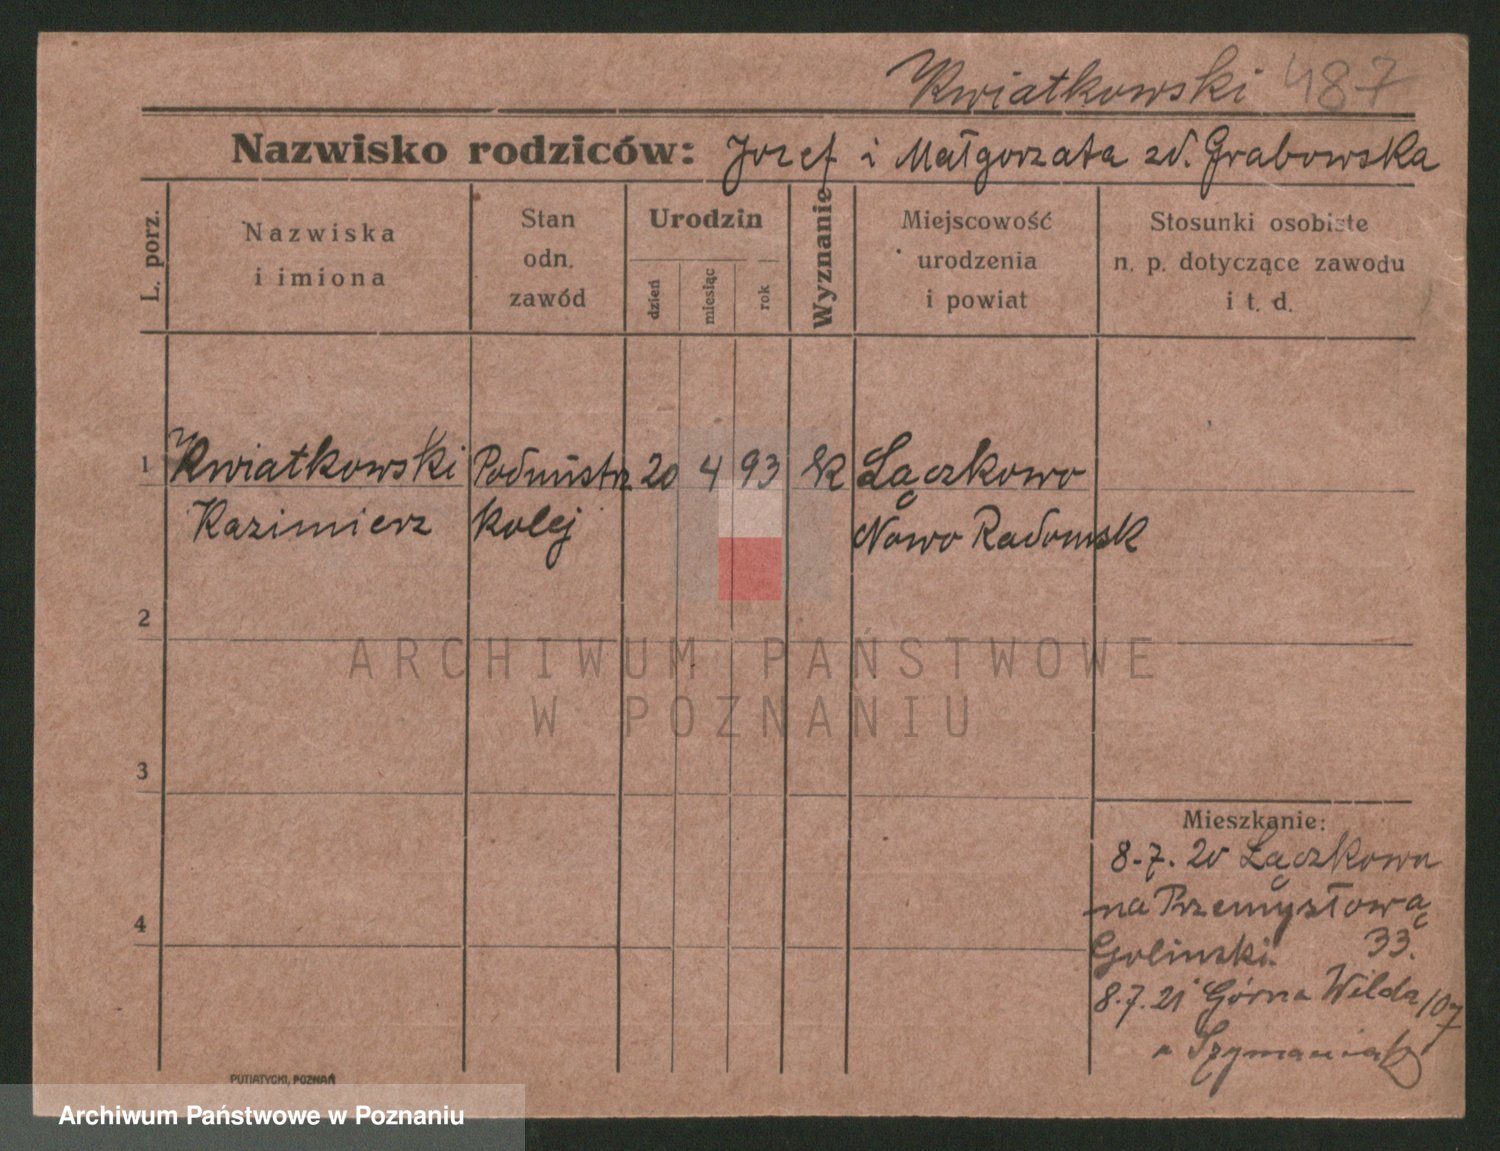 Kwiatkowski 487
Nazwisko rodziców: Jozef i Małgorzata zd. Grabowska
L. porz.
Nazwiska
i imiona
Stan
odn.
zawód
Urodzin
dzień
miesiąc
rok
Wyznanie
Miejscowość
urodzenia
i powiat
Stosunki osobiste
n. p. dotyczące zawodu
i t. d.
1 Kwiatkowski Podmistrz 20 4 93 rk Lączkowo
Kazimierz kolej Nowo Radomsk
2
ARCHIWUM PAŃSTWOWE
W POZNANIU
3
Mieszkanie:
8-7. 20 Lączkowa
na Przemysłową
Golinski 33.
4
8.7.21 Górna Wilda 107
Szymaniak
PUTIATYCKI, POZNAŃ
Archiwum Państwowe w Poznaniu